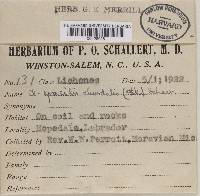 HERB. G. K. MERRILL
FARLOW HERBARIUM
HARVARD
HERBARIUM OF P. O. SCHALLERT, M. D.
WINSTON-SALEM, N. C., U. S. A.
No. 131 Class Lichenes Date 5/1/1922
Cl. gracilis
Synonyms
Habitat On soil and rocks
Locality Hopedale, Labrador
Collected by Rev. W. W. Perrett, Moravian Mis
Determined by
Family
Range
References